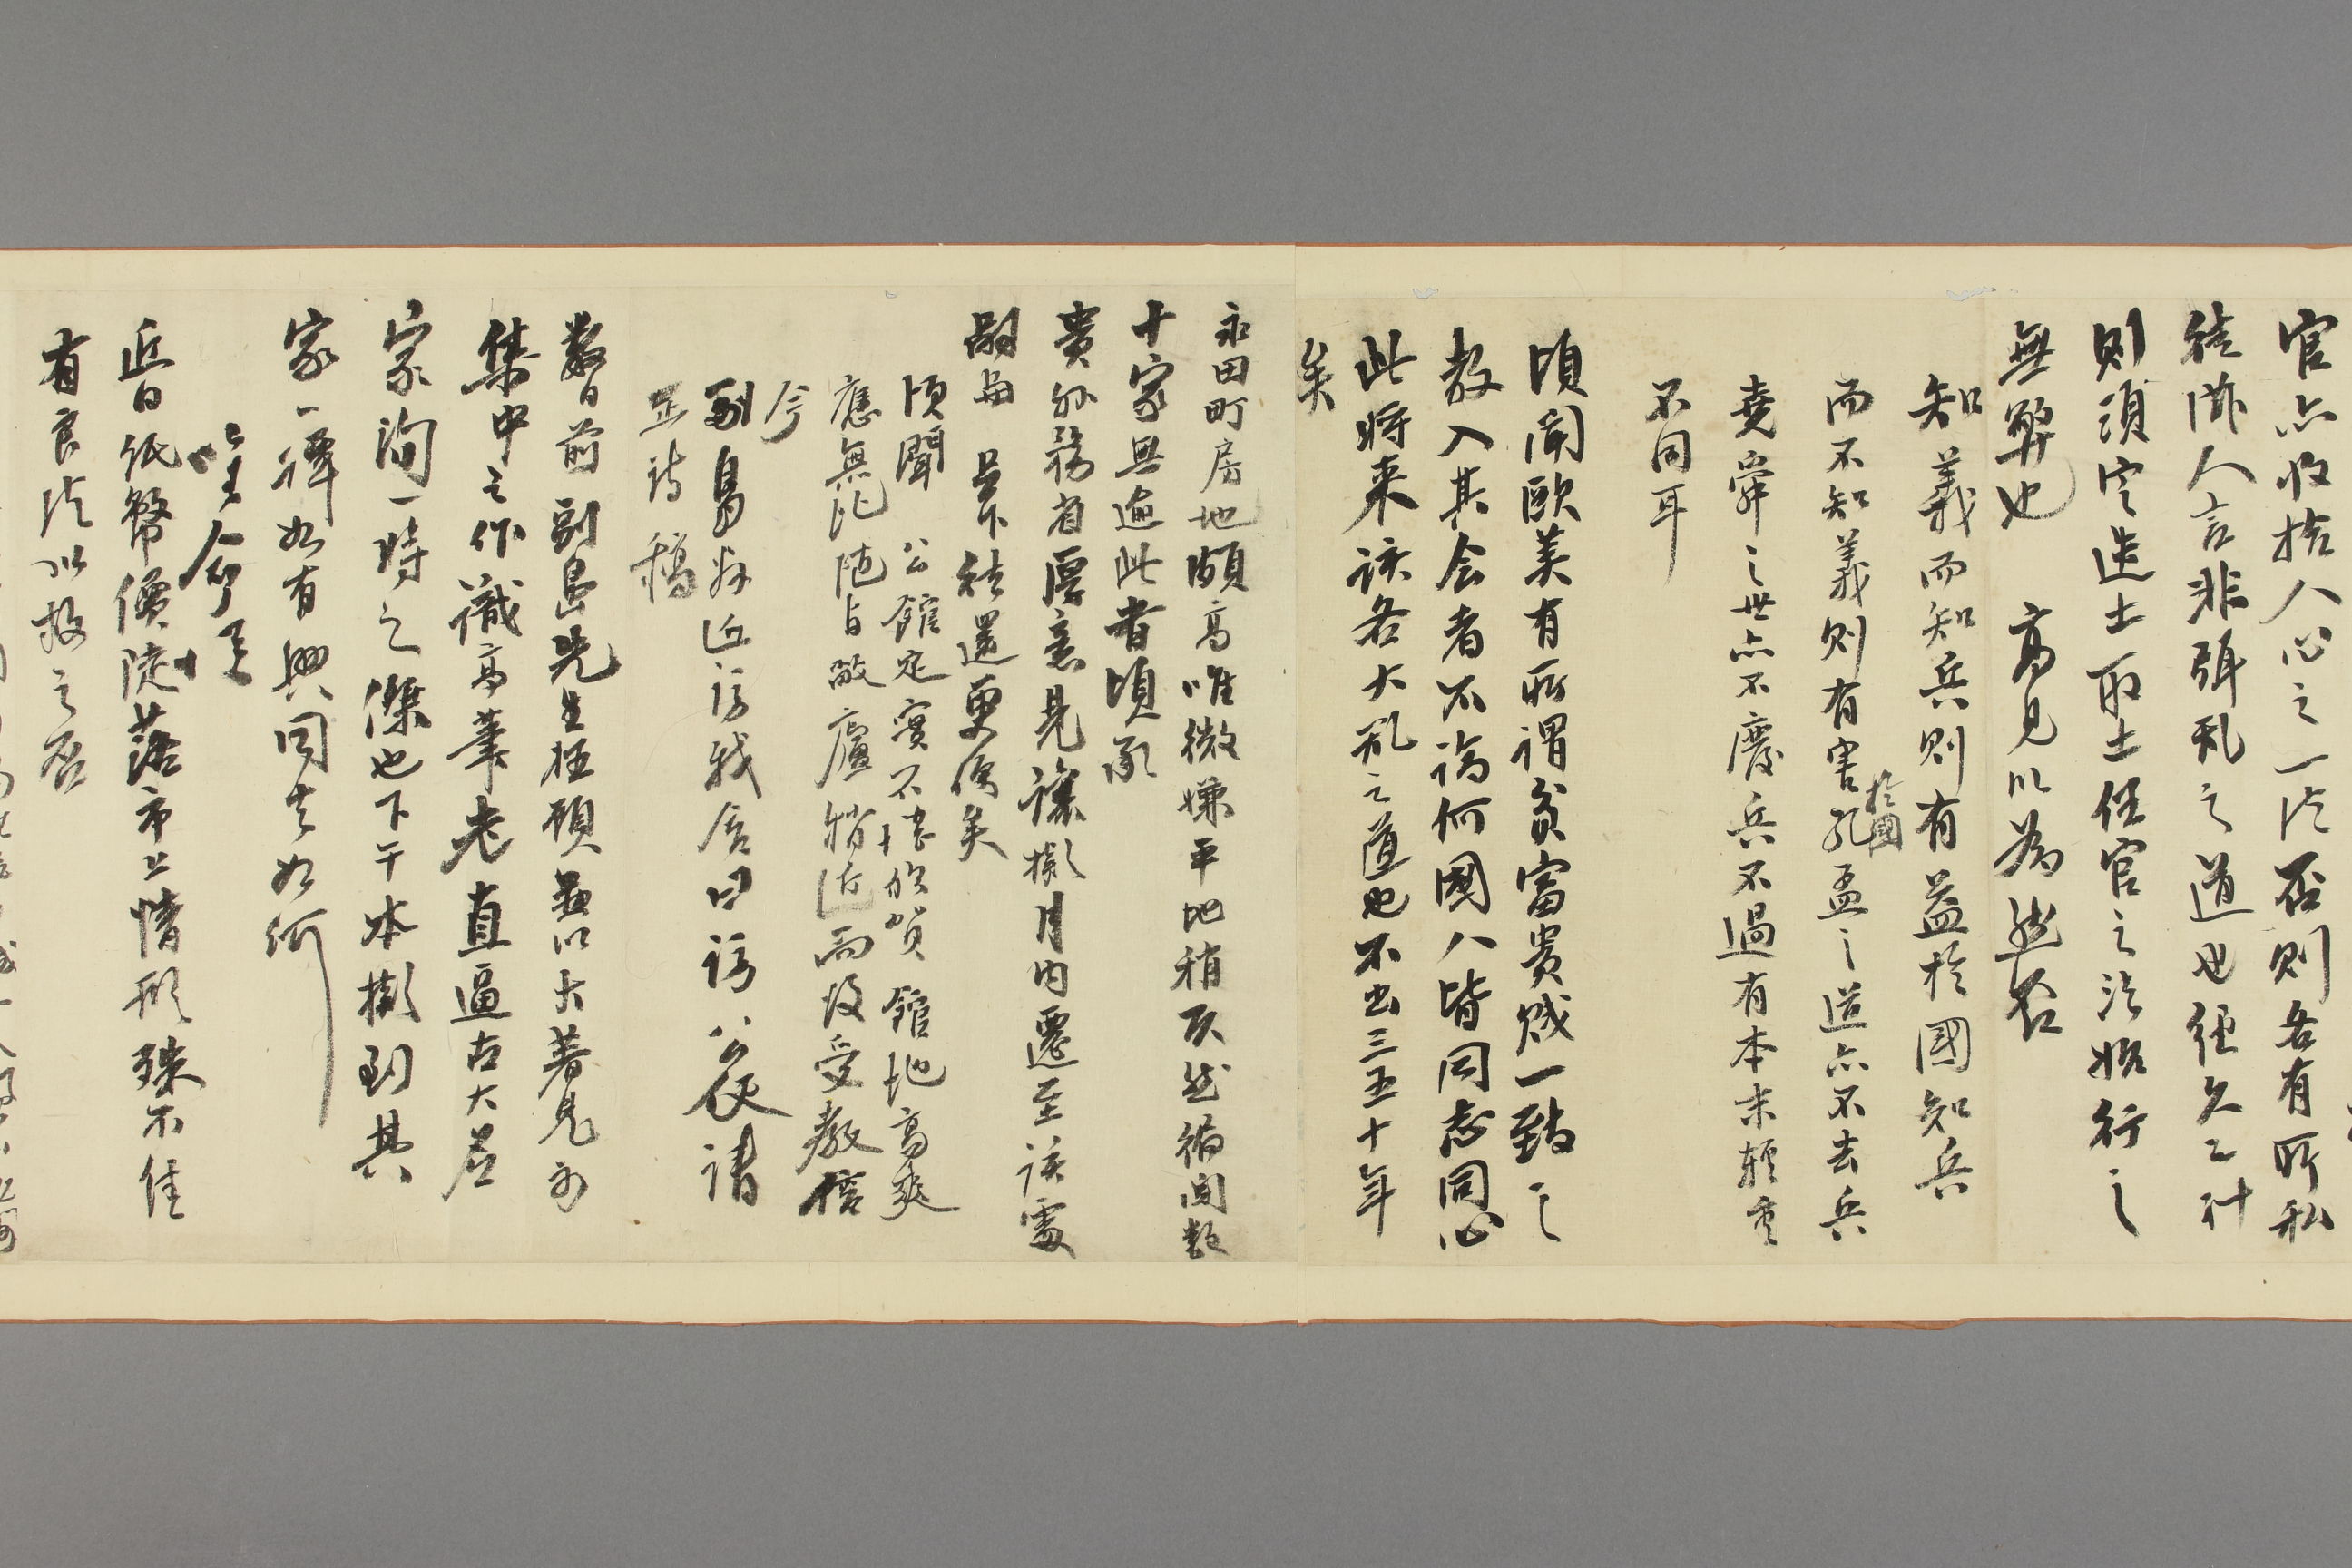 官亦收拾人心之一法否則各有所私
徒滋人言非弭乱之道也經久之計
則須定造士取士任官之法始行之
無弊也 高見以為然否
知義而知兵則有益於國知兵
而不知義則有害於國孔孟之道亦不去兵
堯舜之世亦不廢兵不過有本末輕重
不同耳
頃聞歐美有所謂貧富貴賤一致之
教入其会者不論何國人皆同志同心
此將来該各大乱之道也不出三五十年
矣
永田町房地頗高唯微嫌平地稍仄然循閱數
十家無逾此者頃承
貴外務省厚意見讓擬月內遷至該處
嗣與 閣下往還更便矣
頃聞 公館定實不堪欣賀 館地高爽
應無比随与敝廬稍近而後受教
今
副島好近訪我舍曰訪公使請
正詩稿
數日前副島先生枉顧兼以大著見示
集中之作識高筆老直逼古大君
家洵一時之傑也下午本擬到其
家一譚如有興同去如何
近日紙幣價陡落市上情形殊不佳
有良法以救之否